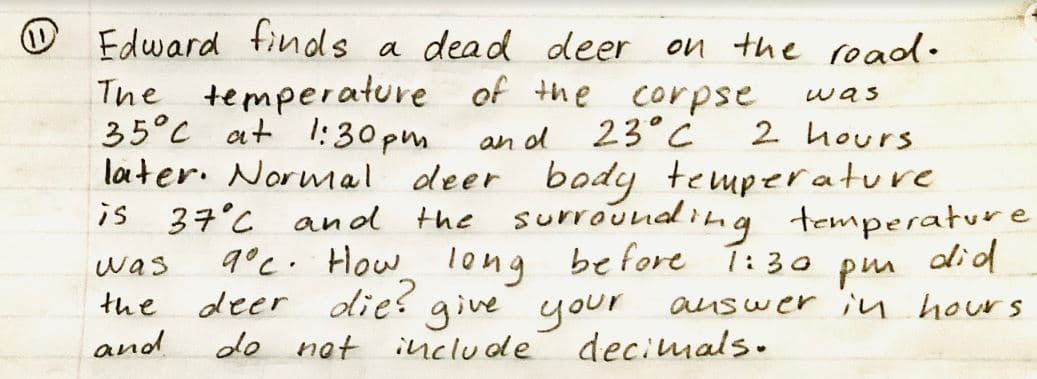 11 Edward finds a dead deer on the road.
The temperature of the corpse was
35°C at 1:30pm and 23°C 2 hours
later. Normal deer body temperature
is 37°C and the surrounding temperature
was 9°C. How long before 1:30 pm did
the deer die? give your answer in hours
and do not include decimals.